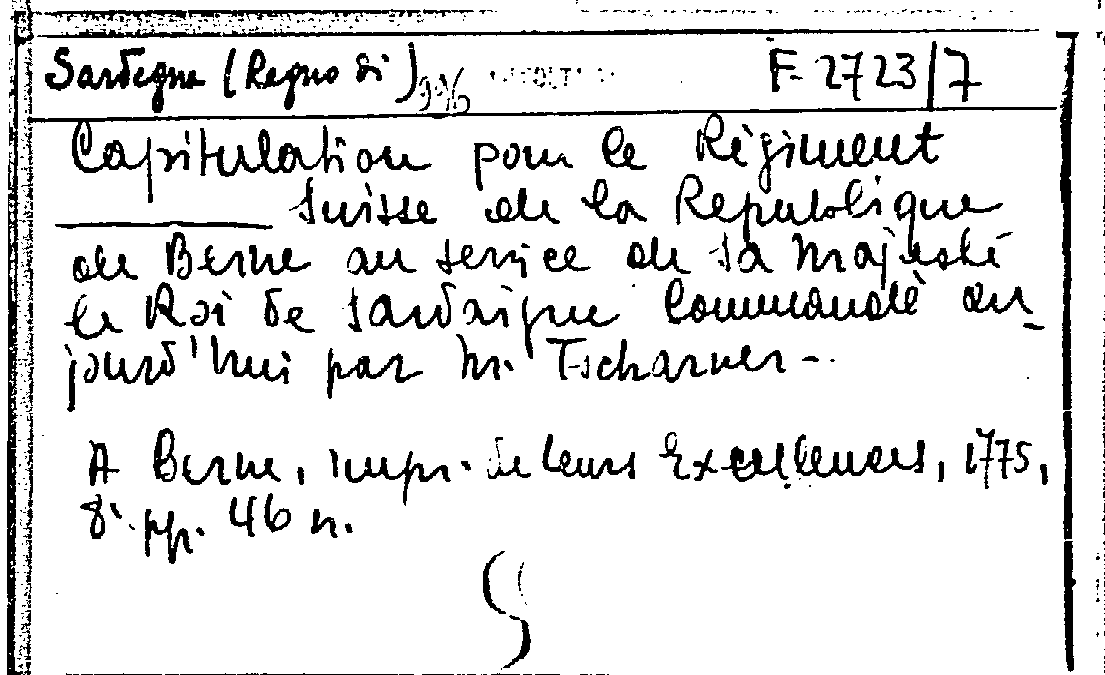 Sardegna (Regno di) 996 F 2723/7
Capitulation pour le Régiment
Suisse de la Republique
de Berne au service de sa Majesté
le Roi de Sardaigne Commandé au-
jourd'hui par Mr. Tscharner-.
A Berne, impr. de Leurs Excellences, 1775,
8° pp. 46 n.